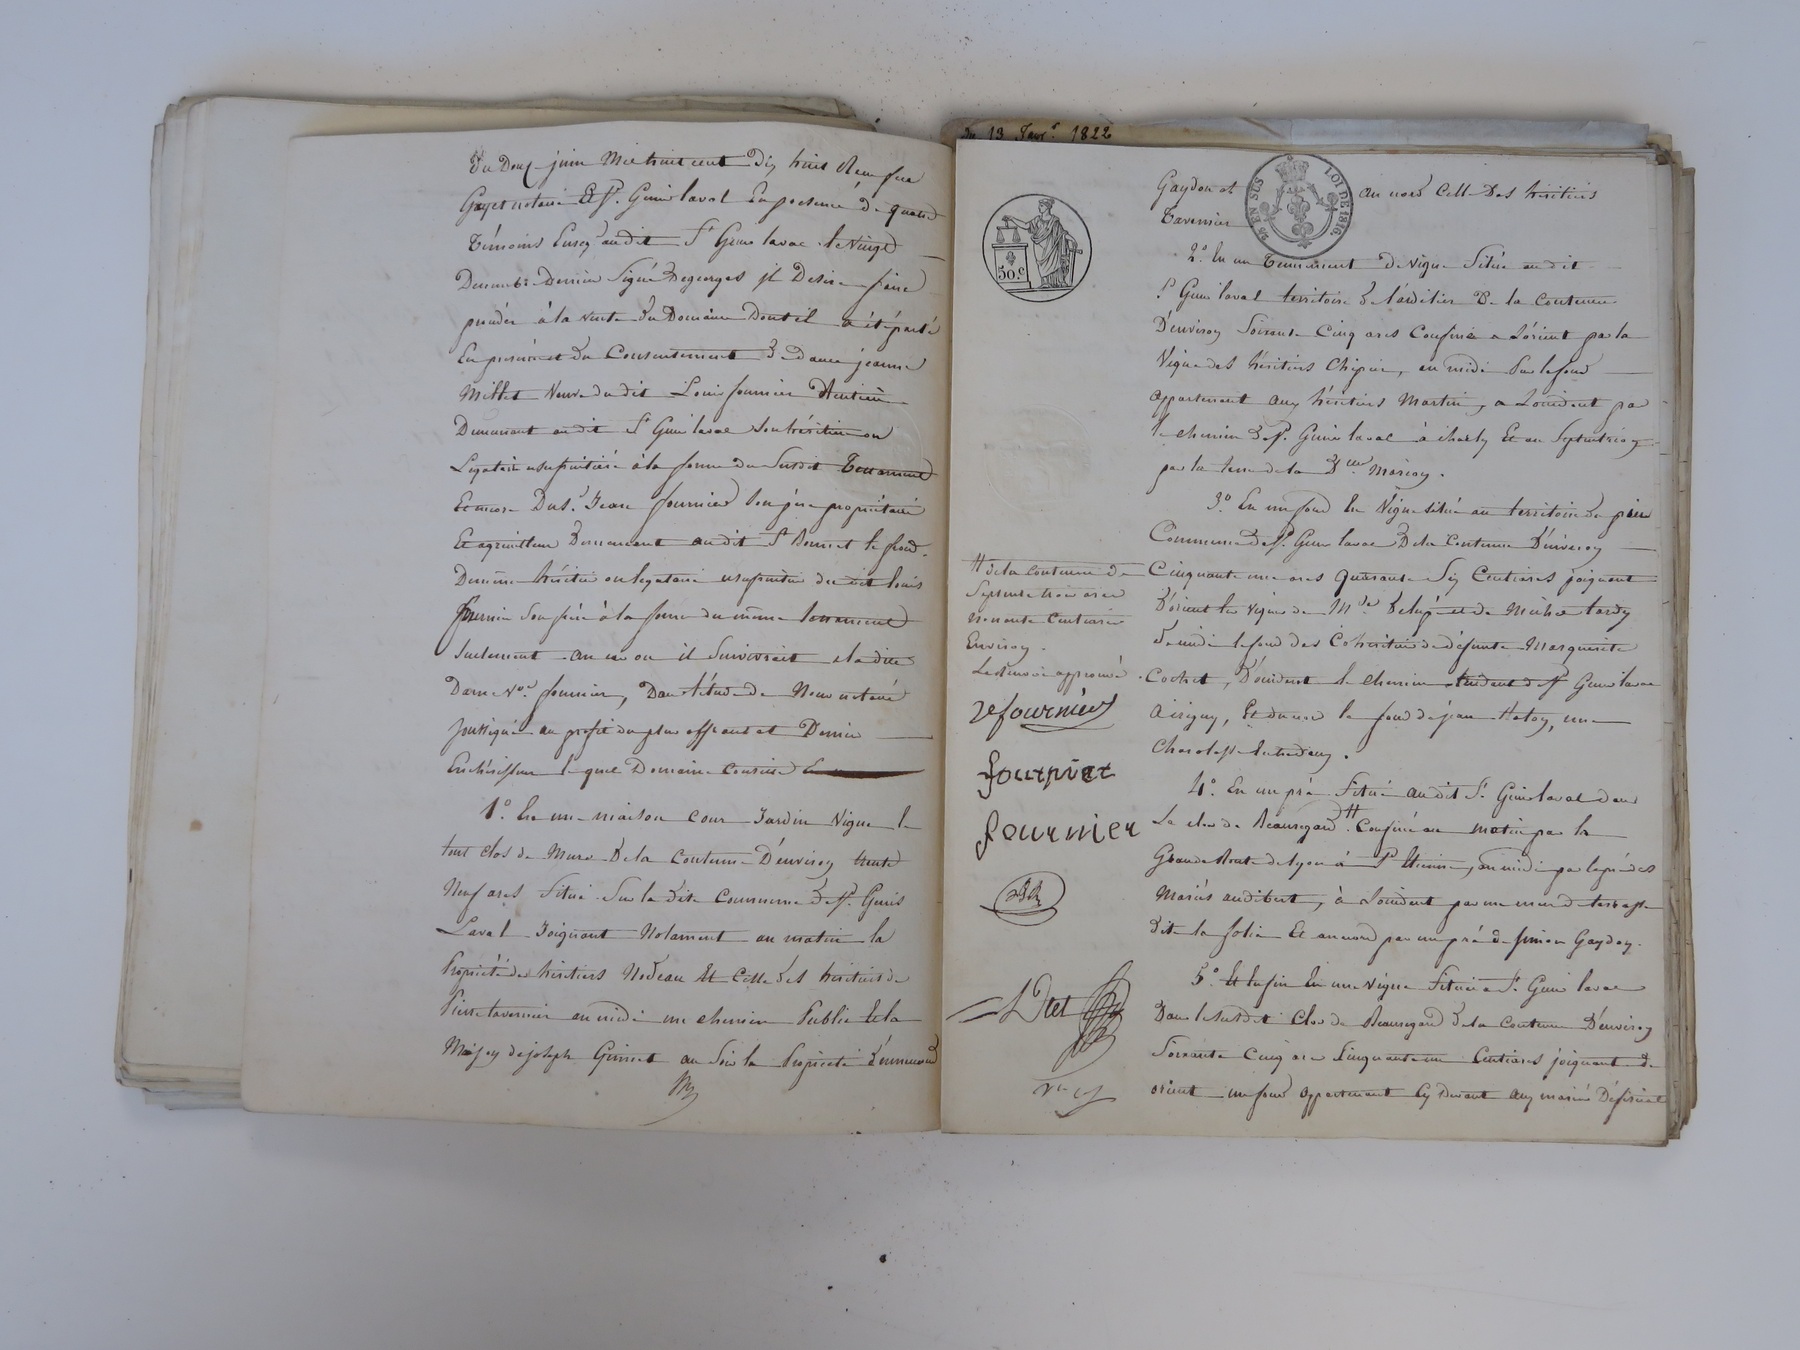 du Deux juin Mil huit cent dix huit Reçu par
Gayet notaire à St. Genis laval En présence de quatre
témoins Enreg.é audit St Genis laval le Vingt
Decembre Dernier Signé Degeorges il Desire faire
procéder à la vente du Domaine Dont il a été parlé
En présence et du Consentement de dame jeanne
Millet Veuve du dit Louis fournier Rentière
Demeurant audit St Genis laval Son héritière ou
Légataire usufruitière à la forme du Susdit Testament
Et encore Du S.r Jean fournier Son père propriétaire
Et agriculteur Demeurant audit St Bonnet le froid
Deuxième héritier ou legataire usufruitier du dit louis
fournier Son frère à la forme du même testament
Seulement au cas ou il Survivrait à la dite
Dame V.ve fournier, Dans l'étude de Nous notaire
soussigné au profit du plus offrant et Dernier
Enchérisseur lequel Domaine consiste En
1.° En une maison cour Jardin Vigne le
tout clos de Murs De la Contenue D'environ trente
Neuf ares Situé Sur la dite Commune de St. Genis
Laval Joignant Notament au matin la
Propriété des héritiers Nodeau Et Celle des héritiers de
Pierre tavernier au midi un chemin Public Et la
Maison de joseph Guinet au Soir la Propriété d'emmund
du 13 Janv.r 1822
50.c
25 EN SUS
LOI DE 1816.
Gaydon et au nord Celle Des héritiers
Tavernier
2.° En un Tennement de Vigne Situé audit
St Genis laval territoire de De la Contenue
D'environ Soixante Cinq ares Confiné à L'orient par la
Vigne des héritiers Chipier, au midi Par le fond
appartenant aux héritiers Martin, à L'occident par
le chemin de St. Genis laval à charly Et au Septentrion
par la terre de la D.lle Marion.
3.° En un fond En Vigne située au territoire de
Commune de St. Genis laval De la Contenue D'environ
Cinquante une ares Quarante Six Centiares joignant
D'orient la Vigne de M.de Delupé et de Michel tardy
de midi le fond des Cohéritiers de défunte Marguerite
Cochet, D'occident le Chemin tendant de St Genis laval
à irigny, Et du nord le fond de jean Hatoy, une
Charolasse Entre deux.
4.° En un pré Situé Audit St. Genis laval dans
Le clos de Beauregard # Confiné au matin par la
Grande Route de lyon à St Etienne, au midi par le pré des
Mariés audibert, à L'occident par une mur de terrasse
dite la folie Et au nord par un pré de Simon Gaydon.
5.° Et Enfin En une Vigne Située à St. Genis laval
Dans le Susdit Clos de Beauregard De la Contenue D'environ
Soixante Cinq ares Cinquante un Centiares joignant de
orient un fond appartenant Cy Devant aux mariés
# de la contenue de
Septante trois ares
Nonante Centiares
Environ.
Le Renvoi approuvé
fournier
fournier
fournier